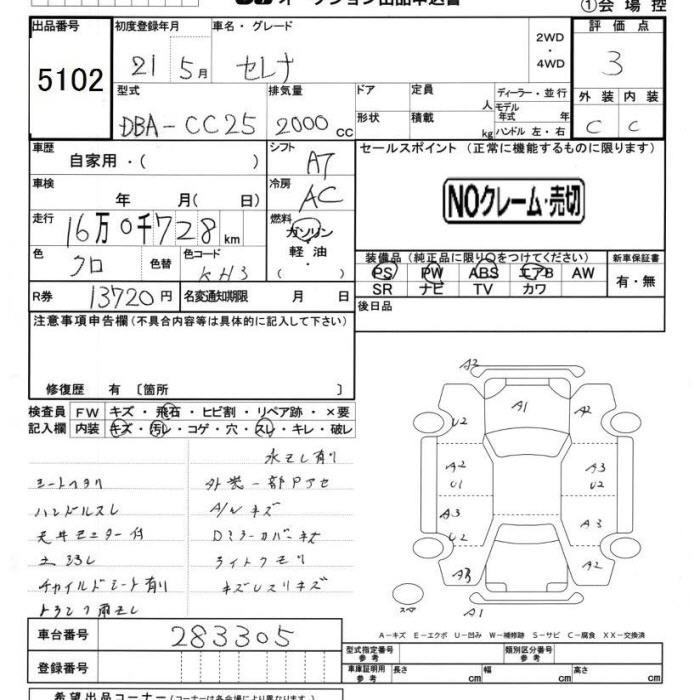 オークション出品申込書
①会場控
出品番号
5102
初度登録年月
21 5月
車名・グレード
セレナ
2WD
・
4WD
評価点
3
型式
DBA-CC25
排気量
2000 cc
ドア
形状
定員 人
積載 kg
ディーラー・並行
モデル年式 年
ハンドル 左・右
外装 内装
C C
車歴
自家用・( )
シフト
AT
セールスポイント (正常に機能するものに限ります)
車検
年 月( 日)
冷房
AC
NOクレーム・売切
走行
16万0千728km
燃料
ガソリン
軽・油
・( )
色
クロ
色替
色コード
KH3
装備品 (純正品に限り○をつけてください)
新車保証書
PS PW ABS エアB AW
SR ナビ TV カワ
有・無
R券
13720円
名変通知期限 月 日
後日品
注意事項申告欄(不具合内容等は具体的に記入して下さい)
修復歴 有 〔箇所 〕
検査員
記入欄
FW キズ・飛石・ヒビ割・リペア跡・×要
内装 キズ・汚レ・コゲ・穴・スレ・キレ・破レ
水モレ有り
シートヘタリ
外装一部アセ
ハンドルスレ
A/Wキズ
天井モニター付
Dミラーカバーキズ
ライトクモリ
チャイルドシート有り
キズレスリキズ
トランク雨モレ
A2
A1
U2
A2
A2
U1
A3
U2
A3
U2
A3
A2
スペア
A1
A-キズ E-エクボ U-凹み W-補修跡 S-サビ C-腐食 XX-交換済
車台番号
283305
型式指定番号
参考
類別区分番号
参考
登録番号
車庫証明用
参考
長さ cm
幅 cm
高さ cm
希望出品コーナー